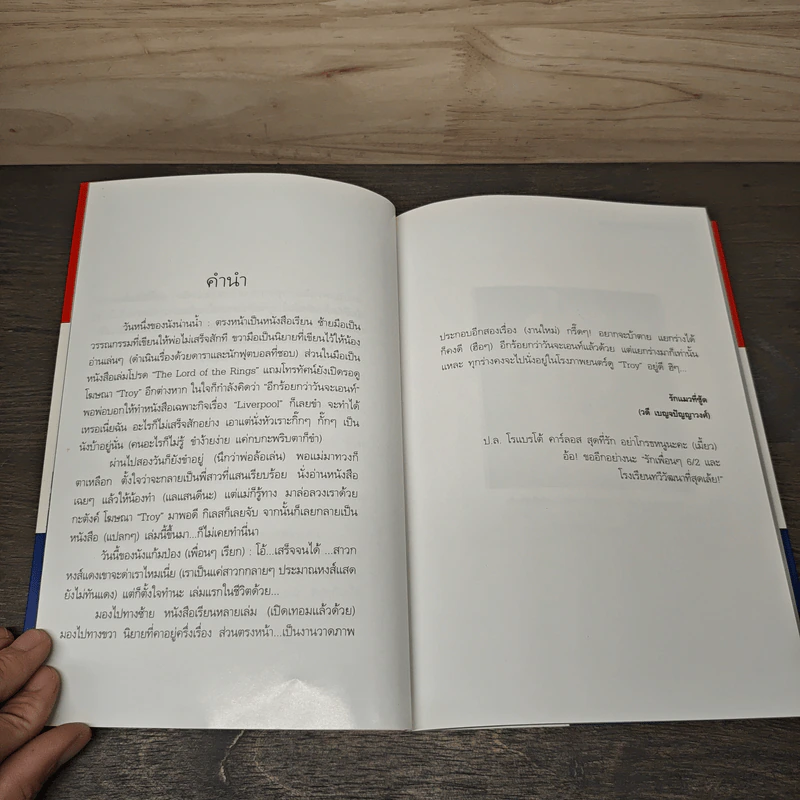 คำนำ
วันหนึ่งของนังน่านน้ำ : ตรงหน้าเป็นหนังสือเรียน ซ้ายมือเป็น
วรรณกรรมที่เขียนให้พ่อไม่เสร็จสักที ขวามือเป็นนิยายที่เขียนไว้ให้น้อง
อ่านเล่นๆ (ดำเนินเรื่องด้วยดาราและนักฟุตบอลที่ชอบ) ส่วนในมือเป็น
หนังสือเล่มโปรด "The Lord of the Rings" แถมโทรทัศน์ยังเปิดรอดู
โฆษณา "Troy" อีกต่างหาก ในใจก็กำลังคิดว่า "อีกร้อยกว่าวันจะเอนท์"
พอพ่อบอกให้ทำหนังสือเฉพาะกิจเรื่อง "Liverpool" ก็เลยขำ จะทำได้
เหรอเนี่ยฉัน อะไรก็ไม่เสร็จสักอย่าง เอาแต่นั่งหัวเราะกิ๊กๆ กั๊กๆ เป็น
นังบ้าอยู่นั่น (คนอะไรก็ไม่รู้ ขำง้ายง่าย แค่กบกะพริบตาก็ขำ)
ผ่านไปสองวันก็ยังขำอยู่ (นึกว่าพ่อล้อเล่น) พอแม่มาทวงก็
ตาเหลือก ตั้งใจว่าจะกลายเป็นพี่สาวที่แสนเรียบร้อย นั่งอ่านหนังสือ
เฉยๆ แล้วให้น้องทำ (แลแสนดีนะ) แต่แม่ก็รู้ทาง มาล่อลวงเราด้วย
กะตังค์ โฆษณา "Troy" มาพอดี กิเลสก็เลยจับ จากนั้นก็เลยกลายเป็น
หนังสือ (แปลกๆ) เล่มนี้ขึ้นมา...ก็ไม่เคยทำนี่นา
วันนี้ของนังแก้มป่อง (เพื่อนๆ เรียก) : โอ้...เสร็จจนได้ ...สาวก
หงส์แดงเขาจะด่าเราไหมเนี่ย (เราเป็นแค่สาวกกลายๆ ประมาณหงส์แสด
ยังไม่ทันแดง) แต่ก็ตั้งใจทำนะ เล่มแรกในชีวิตด้วย...
มองไปทางซ้าย หนังสือเรียนหลายเล่ม (เปิดเทอมแล้วด้วย)
มองไปทางขวา นิยายที่คาอยู่ครึ่งเรื่อง ส่วนตรงหน้า...เป็นงานวาดภาพ
ประกอบอีกสองเรื่อง (งานใหม่) กรี๊ดๆ! อยากจะบ้าตาย แยกร่างได้
ก็คงดี (ฮือๆ) อีกร้อยกว่าวันจะเอนท์แล้วด้วย แต่แยกร่างมาก็เท่านั้น
แหละ ทุกร่างคงจะไปนั่งอยู่ในโรงภาพยนตร์ดู "Troy" อยู่ดี ฮิๆ...
รักแมวที่ซู้ด
(วดี เบญจปัญญาวงศ์)
ป.ล. โรแบรโต้ คาร์ลอส สุดที่รัก อย่าโกรธหนูนะคะ (เมี้ยว)
อ้อ! ขออีกอย่างนะ "รักเพื่อนๆ 6/2 และ
โรงเรียนทวีวัฒนาที่สุดเล้ย!"